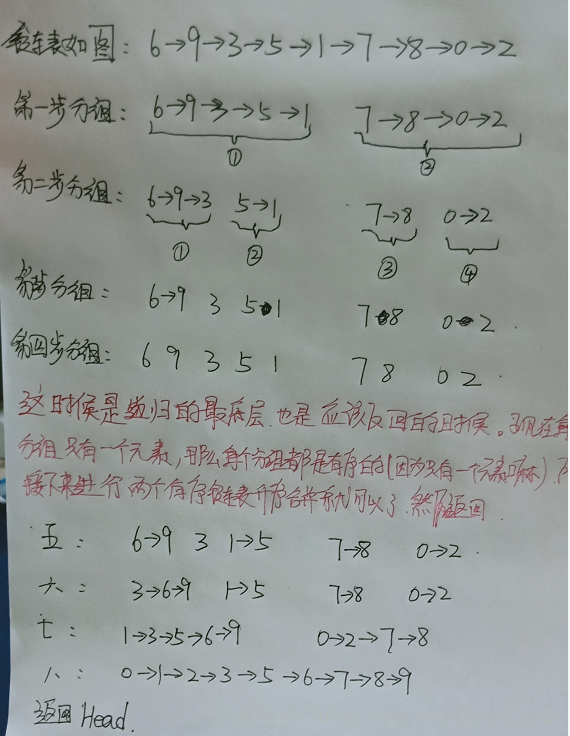 链表如图: 6→9→3→5→1→7→8→0→2
第一步分组: 6→9→3→5→1 7→8→0→2
① ②
第二步分组: 6→9→3 5→1 7→8 0→2
① ② ③ ④
第三步分组: 6→9 3 5 1 7 8 0 2
第四步分组: 6 9 3 5 1 7 8 0 2
这时候是递归的最底层,也是应该返回的时候。现在每
分组只有一个元素,那么每个分组都是有序的(因为只有一个元素嘛).
接下来进行两个有序链表排序合并就可以了.然后返回
五: 6→9 3 1→5 7→8 0→2
六: 3→6→9 1→5 7→8 0→2
七: 1→3→5→6→9 0→2→7→8
八: 0→1→2→3→5→6→7→8→9
返回Head.